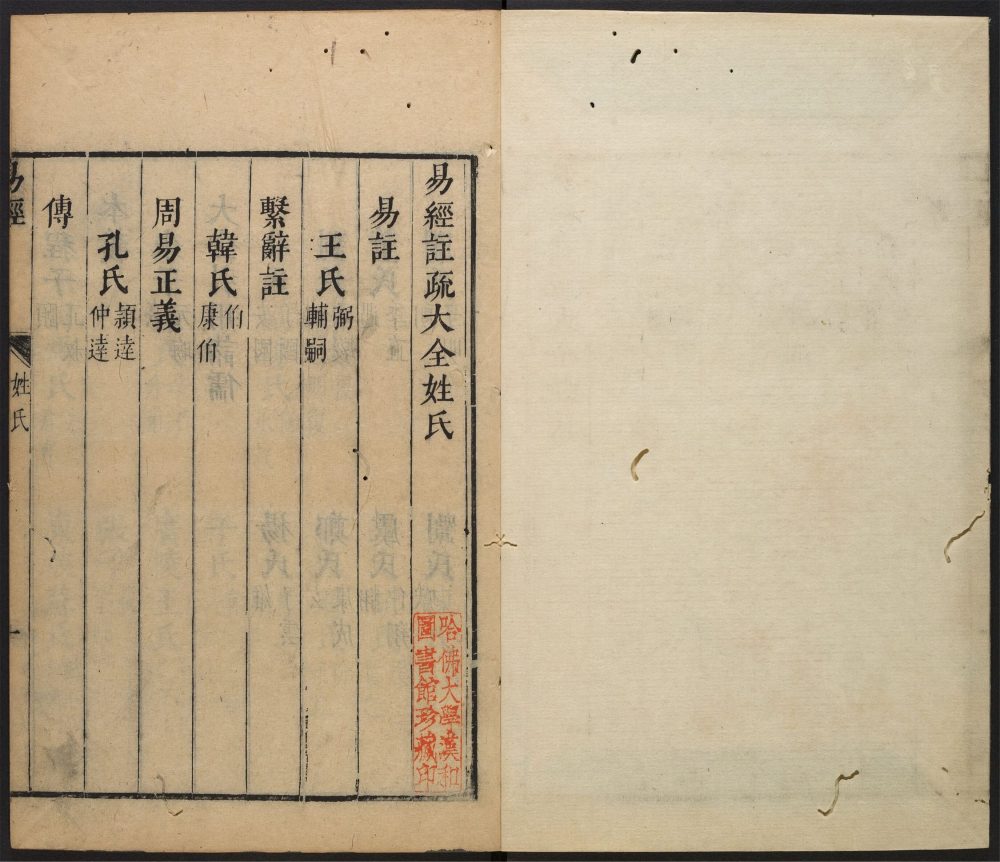 易經註疏大全姓氏
易註
王氏弼輔嗣
繫辭註
韓氏伯康伯
周易正義
孔氏穎達仲達
傳
易經 姓氏 一
哈佛大學漢和
圖書館珍藏印